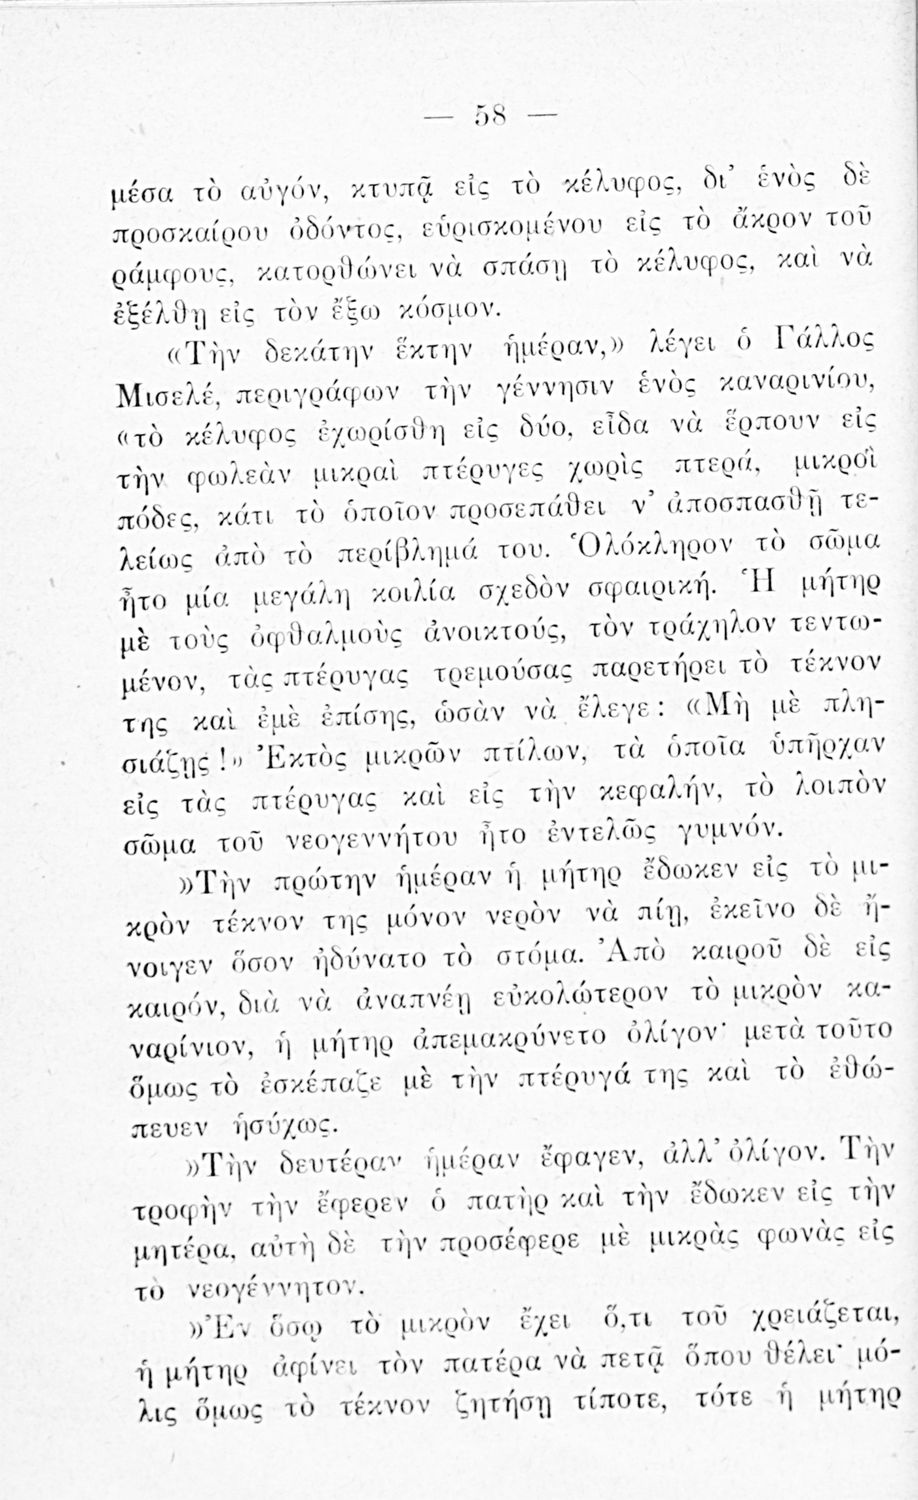 — 58 —
μέσα τὸ αὐγόν, κτυπᾷ εἰς τὸ κέλυφος, δι’ ἑνὸς δὲ
προσκαίρου ὀδόντος, εὑρισκομένου εἰς τὸ ἄκρον τοῦ
ράμφους, κατορθώνει νὰ σπάσῃ τὸ κέλυφος, καὶ νὰ
ἐξέλθῃ εἰς τὸν ἔξω κόσμον.
«Τὴν δεκάτην ἕκτην ἡμέραν,» λέγει ὁ Γάλλος
Μισελέ, περιγράφων τὴν γέννησιν ἑνὸς καναρινίου,
«τὸ κέλυφος ἐχωρίσθη εἰς δύο, εἶδα νὰ ἕρπουν εἰς
τὴν φωλεὰν μικραὶ πτέρυγες χωρὶς πτερά, μικροὶ
πόδες, κάτι τὸ ὁποῖον προσεπάθει ν’ ἀποσπασθῇ τε-
λείως ἀπὸ τὸ περίβλημά του. Ὁλόκληρον τὸ σῶμα
ἦτο μία μεγάλη κοιλία σχεδὸν σφαιρική. Ἡ μήτηρ
μὲ τοὺς ὀφθαλμοὺς ἀνοικτούς, τὸν τράχηλον τεντω-
μένον, τὰς πτέρυγας τρεμούσας παρετήρει τὸ τέκνον
της καὶ ἐμὲ ἐπίσης, ὡσὰν νὰ ἔλεγε: «Μὴ μὲ πλη-
σιάζῃς!» Ἐκτὸς μικρῶν πτίλων, τὰ ὁποῖα ὑπῆρχαν
εἰς τὰς πτέρυγας καὶ εἰς τὴν κεφαλήν, τὸ λοιπὸν
σῶμα τοῦ νεογεννήτου ἦτο ἐντελῶς γυμνόν.
»Τὴν πρώτην ἡμέραν ἡ μήτηρ ἔδωκεν εἰς τὸ μι-
κρὸν τέκνον της μόνον νερὸν νὰ πίῃ, ἐκεῖνο δὲ ἤ-
νοιγεν ὅσον ἠδύνατο τὸ στόμα. Ἀπὸ καιροῦ δὲ εἰς
καιρόν, διὰ νὰ ἀναπνέῃ εὐκολώτερον τὸ μικρὸν κα-
ναρίνιον, ἡ μήτηρ ἀπεμακρύνετο ὀλίγον· μετὰ τοῦτο
ὅμως τὸ ἐσκέπαζε μὲ τὴν πτέρυγά της καὶ τὸ ἐθώ-
πευεν ἡσύχως.
»Τὴν δευτέραν ἡμέραν ἔφαγεν, ἀλλ’ ὀλίγον. Τὴν
τροφὴν τὴν ἔφερεν ὁ πατὴρ καὶ τὴν ἔδωκεν εἰς τὴν
μητέρα, αὐτὴ δὲ τὴν προσέφερε μὲ μικρὰς φωνὰς εἰς
τὸ νεογέννητον.
»Ἐν ὅσῳ τὸ μικρὸν ἔχει ὅ,τι τοῦ χρειάζεται,
ἡ μήτηρ ἀφίνει τὸν πατέρα νὰ πετᾷ ὅπου θέλει· μό-
λις ὅμως τὸ τέκνον ζητήσῃ τίποτε, τότε ἡ μήτηρ